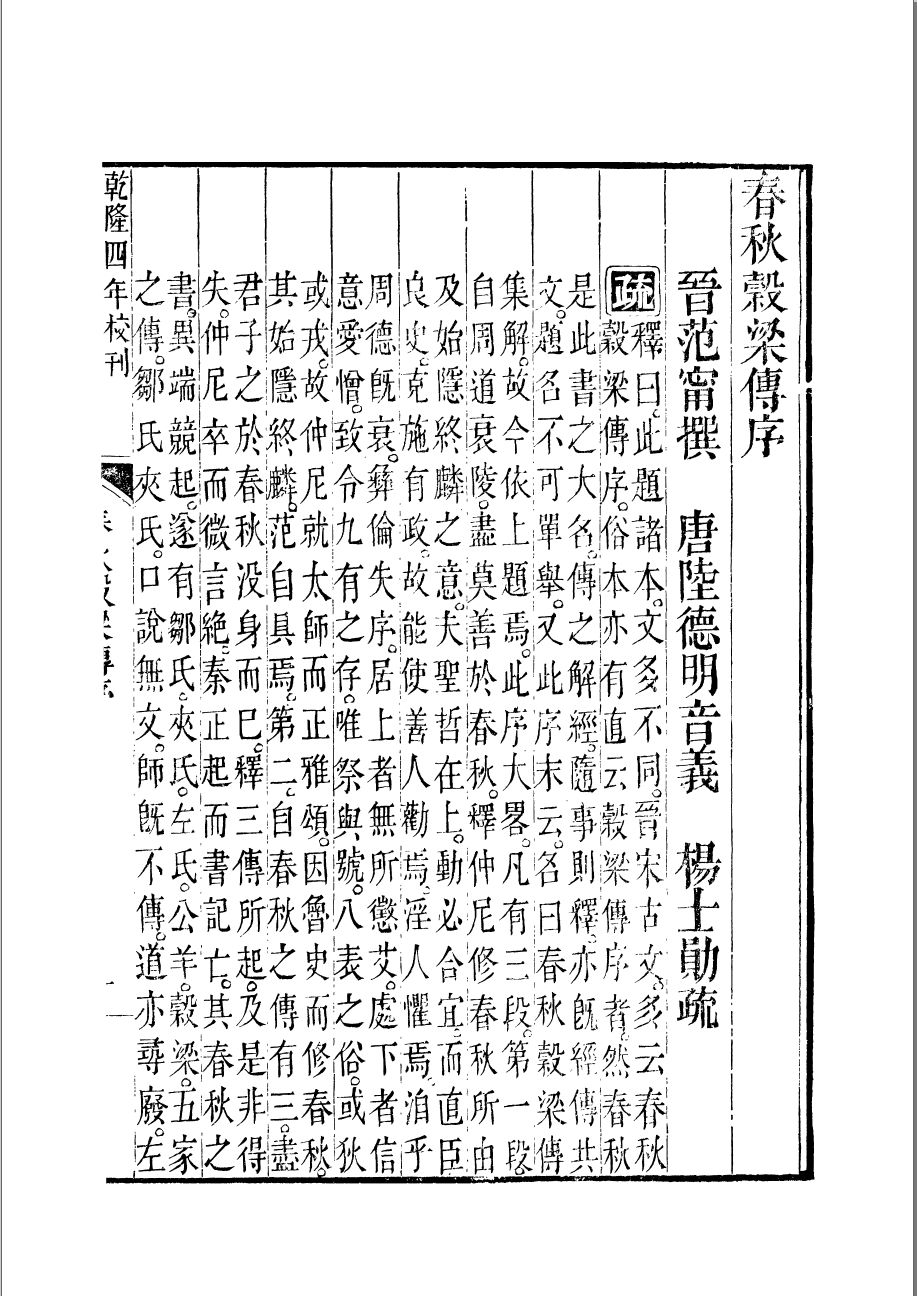 春秋穀梁傳序
晉范甯撰　唐陸德明音義　楊士勛疏
疏
釋曰。此題諸本。文多不同。晉宋古文。多云春秋
穀梁傳序。俗本亦有直云穀梁傳序者。然春秋
是此書之大名。傳之解經。隨事則釋。亦旣經傳共
文。題名不可單舉。又此序末云。名曰春秋穀梁傳
集解。故今依上題焉。此序大畧。凡有三段。第一段。
自周道衰陵。盡莫善於春秋。釋仲尼修春秋所由
及始隱終麟之意。夫聖哲在上。動必合宜。而直臣
良史。克施有政。故能使善人勸焉。淫人懼焉。洎乎
周德旣衰。彝倫失序。居上者無所懲艾。處下者信
意愛憎。致令九有之存。唯祭與號。八表之俗。或狄
或戎。故仲尼就太師而正雅頌。因魯史而修春秋。
其始隱終麟。范自具焉。第二。自春秋之傳有三。盡
君子之於春秋没身而已。釋三傳所起。及是非得
失。仲尼卒而微言絶。秦正起而書記亡。其春秋之
書。異端競起。遂有鄒氏。夾氏。左氏。公羊。穀梁。五家
之傳。鄒氏夾氏。口說無文。師旣不傳。道亦尋廢。左
乾隆四年校刊
一